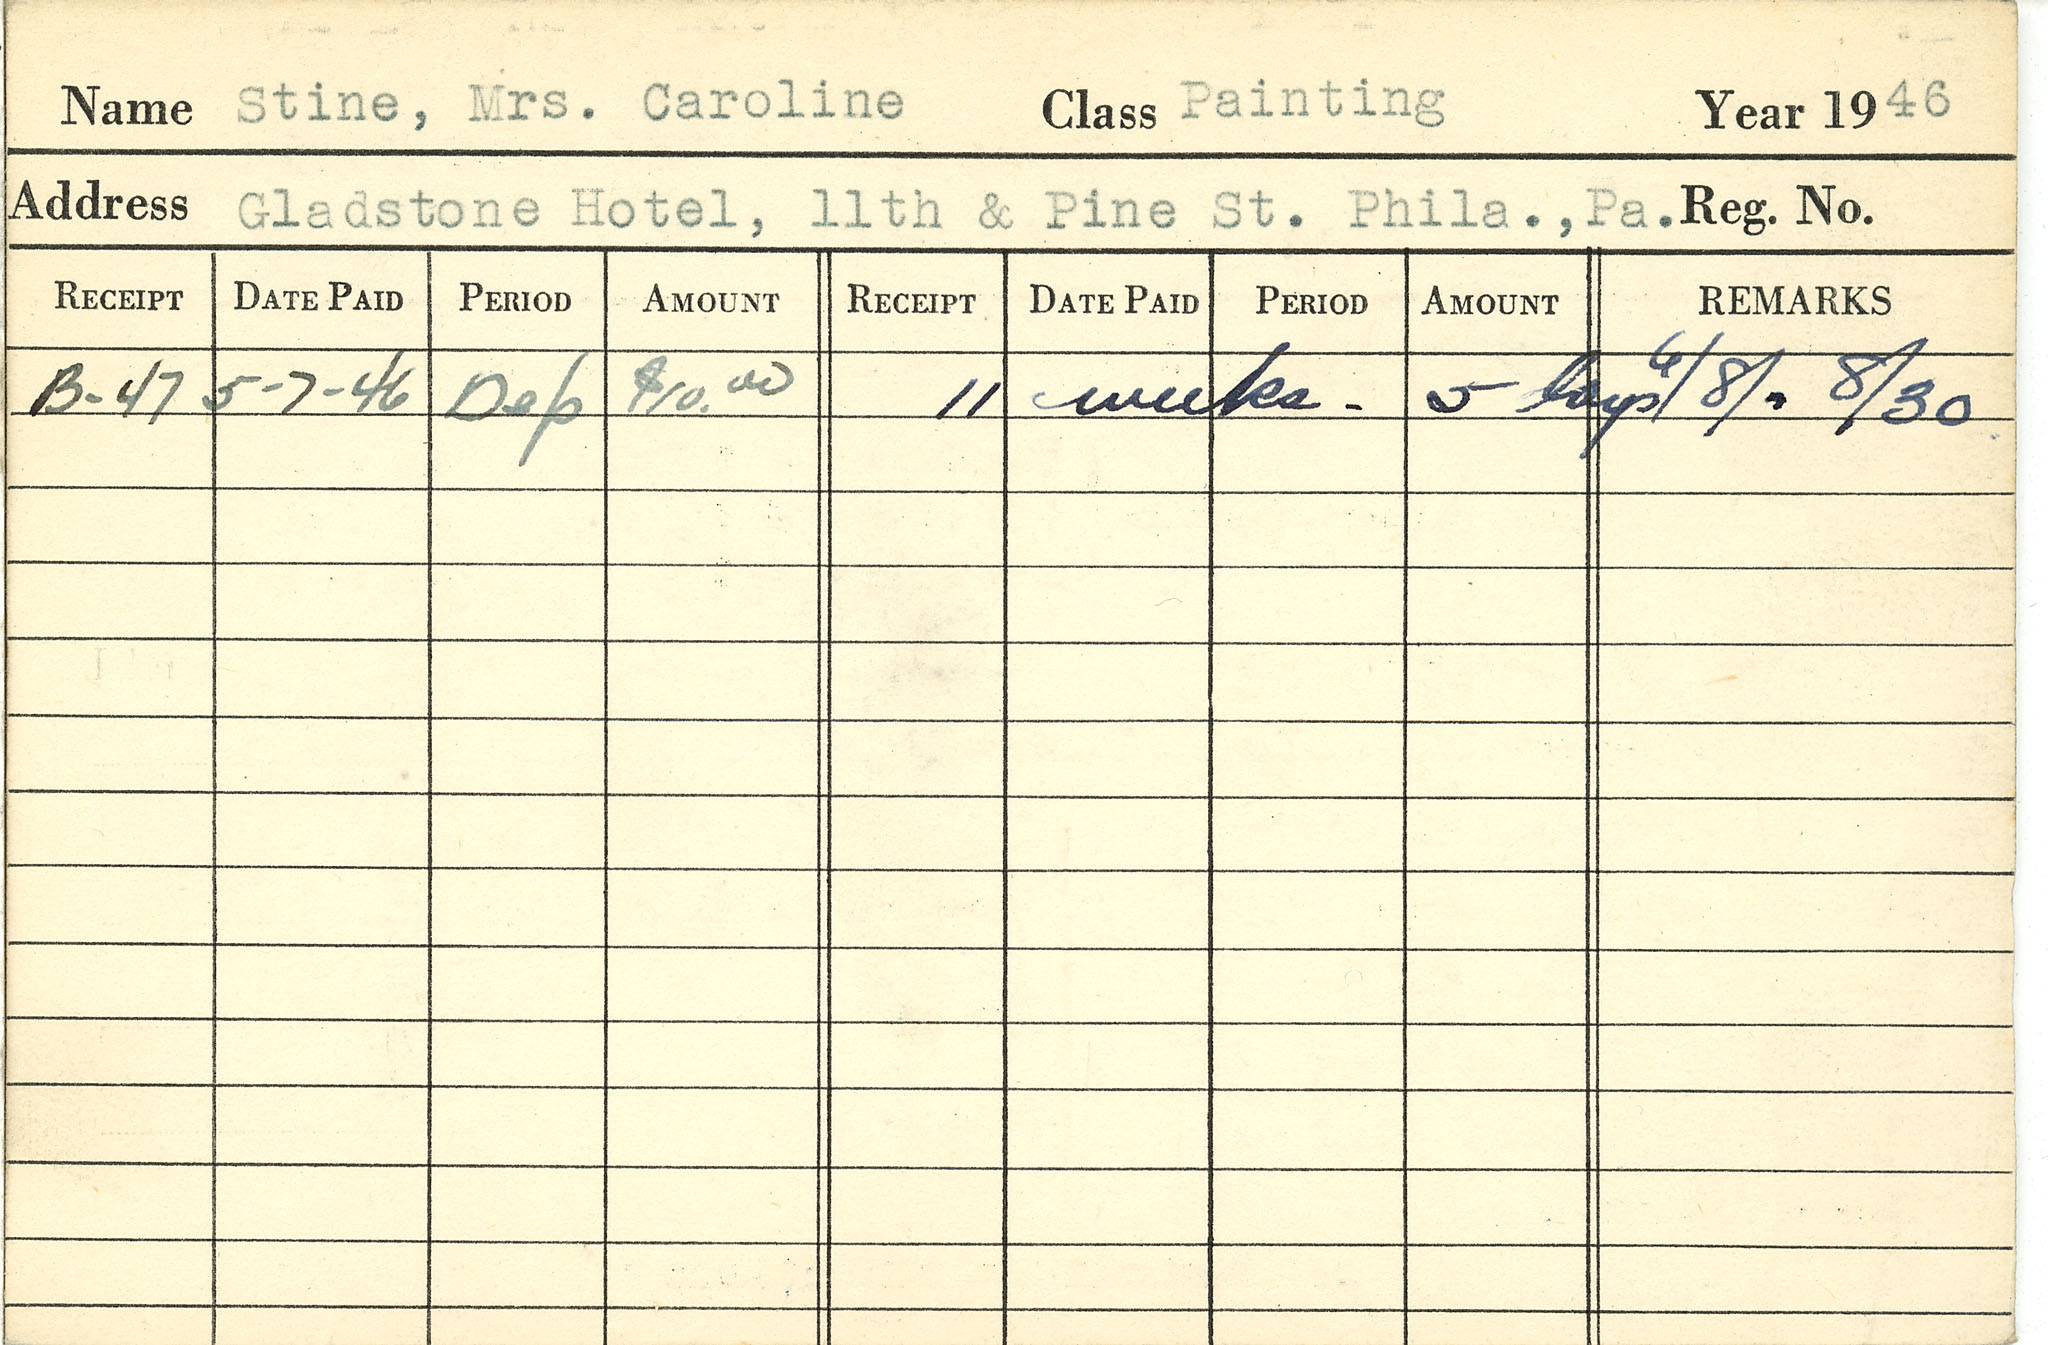 Name Stine, Mrs. Caroline Class Painting Year 1946
Address Gladstone Hotel, 11th & Pine St. Phila.,Pa. Reg. No.
RECEIPT DATE PAID PERIOD AMOUNT RECEIPT DATE PAID PERIOD AMOUNT REMARKS
B-47 5-7-46 Dep $10.00 11 weeks - 5 days 6/8/- 8/30